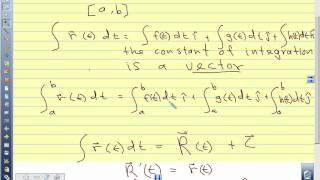 [a,b]
∫ r⃗(t) dt = ∫f(t)dt î + ∫g(t)dt ĵ + ∫h(t)dt k̂
the constant of integration
is a vector
∫_a^b r⃗(t) dt = ∫_a^b f(t)dt î + ∫_a^b g(t)dt ĵ + ∫_a^b h(t)dt k̂
∫ r⃗(t) dt = R⃗(t) + C⃗
R⃗'(t) = r⃗(t)